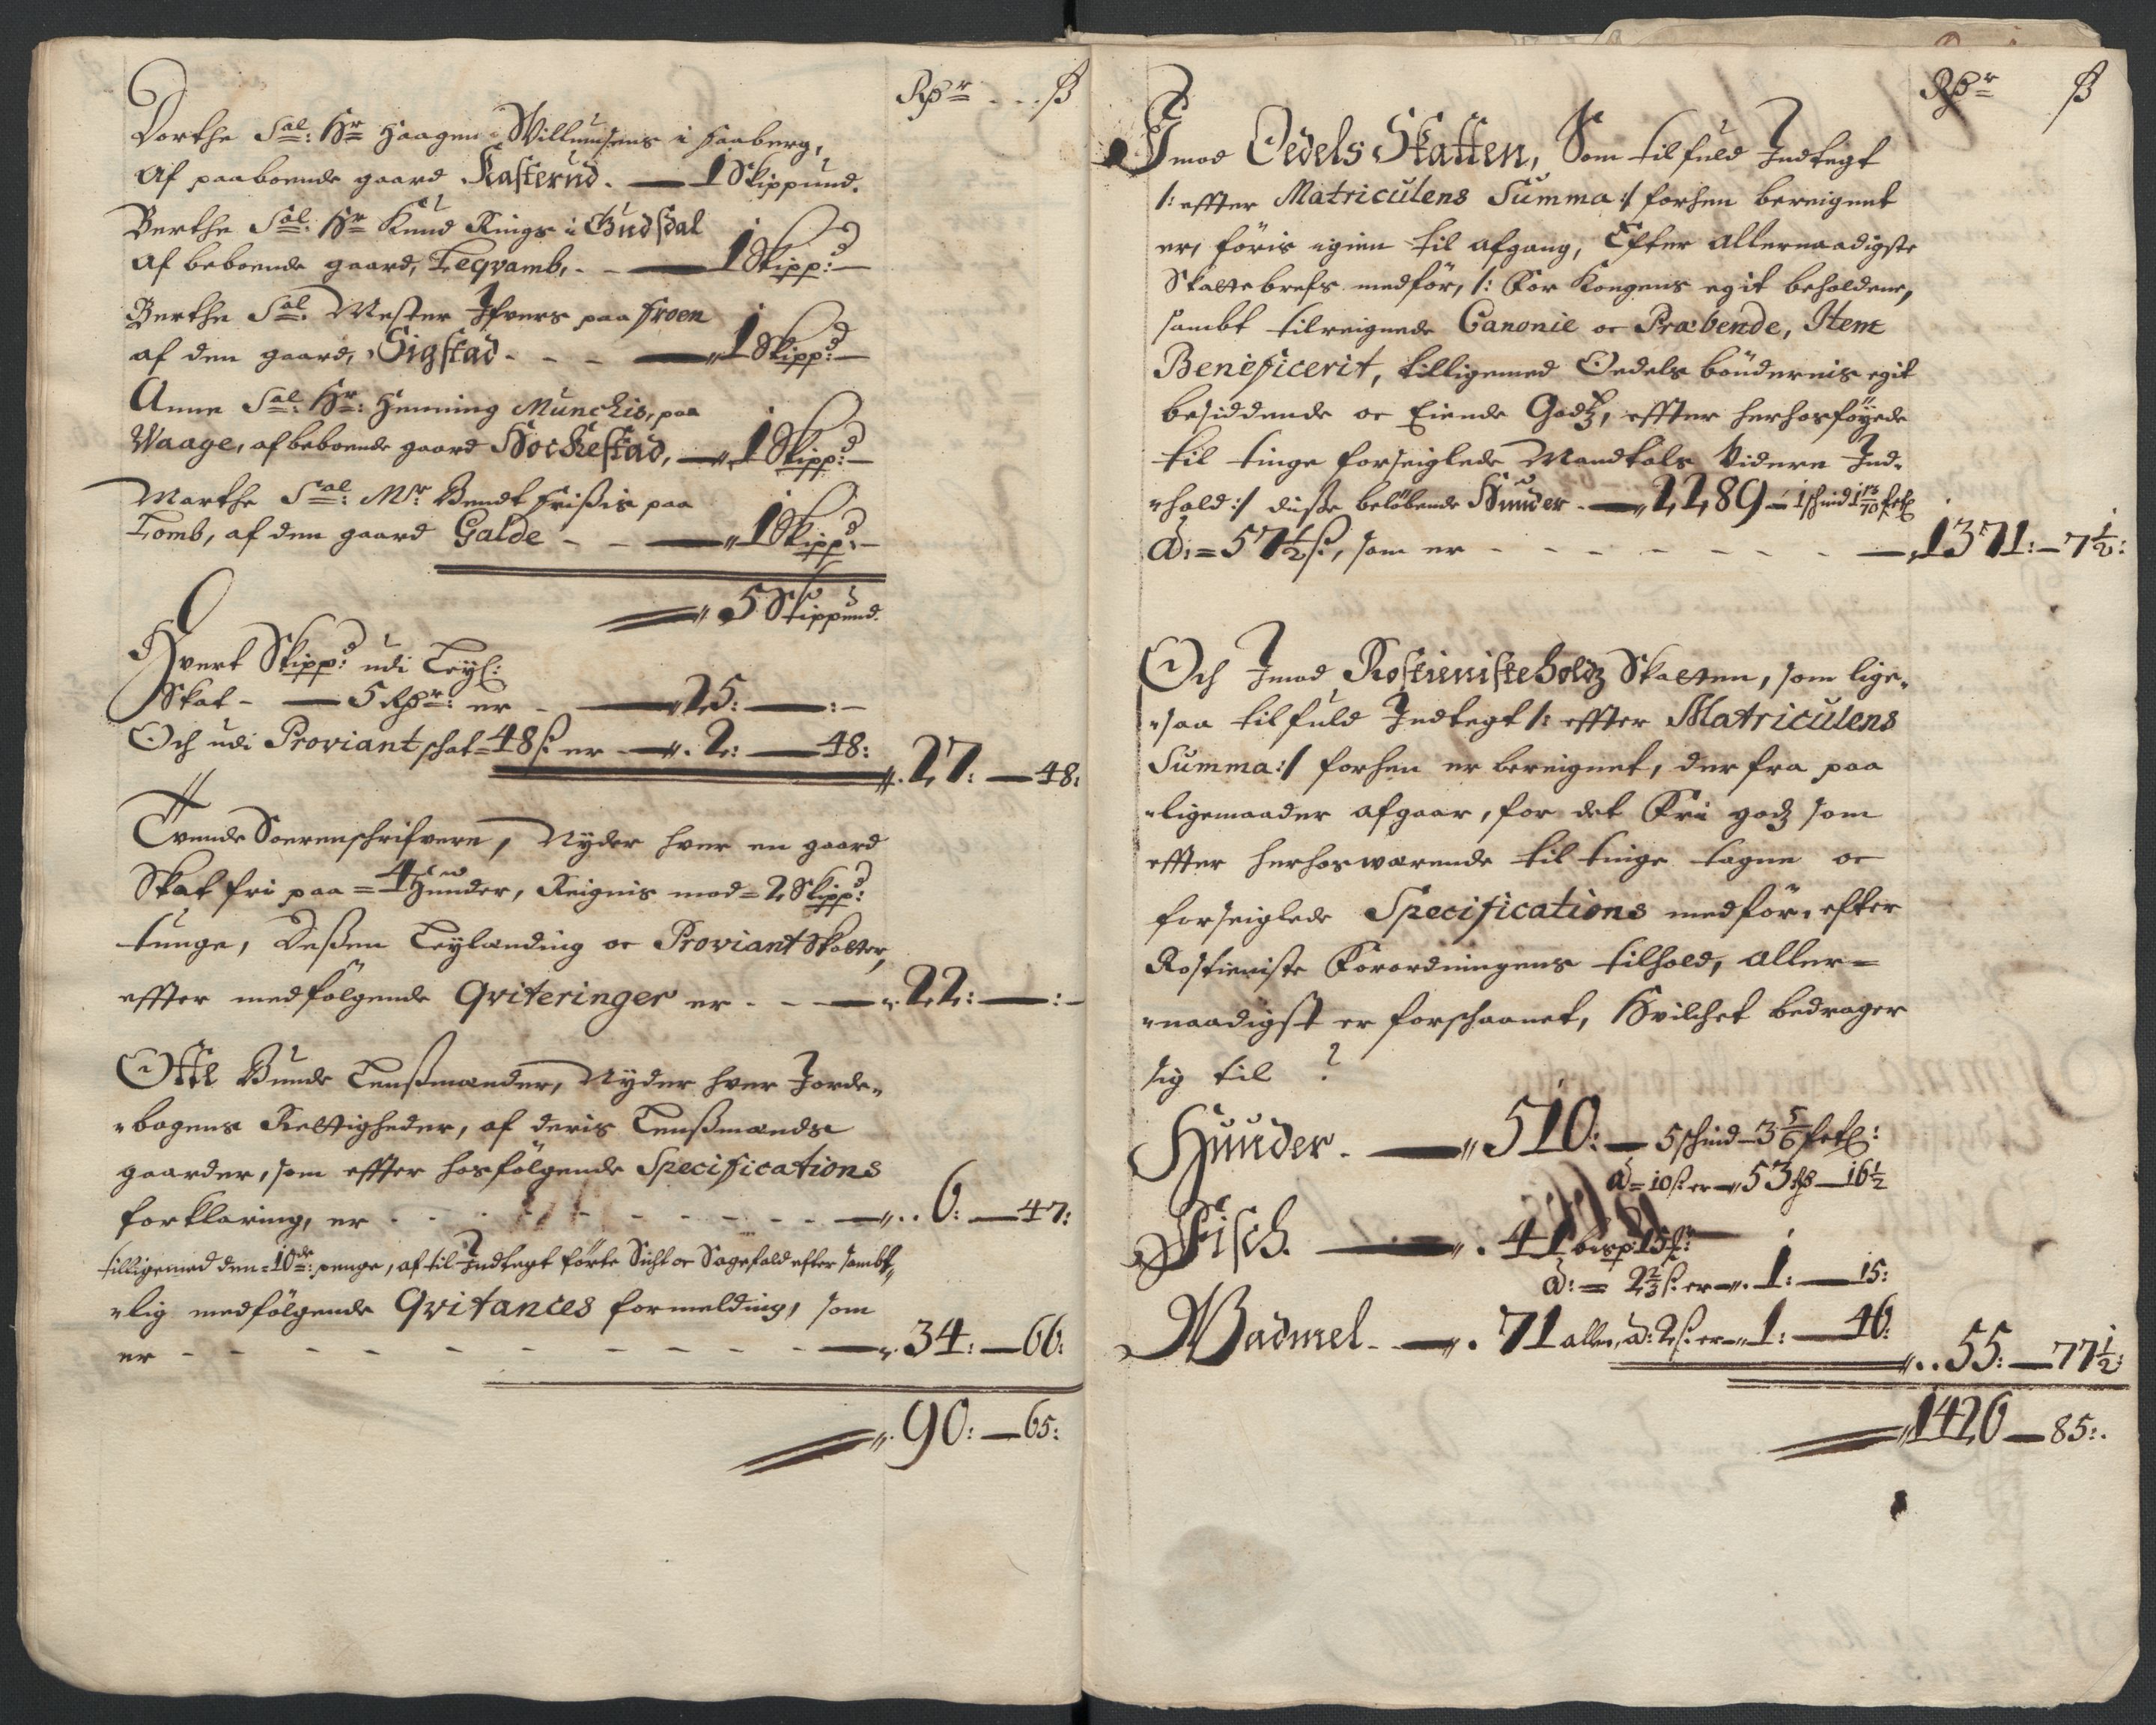 Rdr ß
Dorthe Sal: Hr Haagen Willumsens i Faaberg,
Af paaboende gaard Kasterud. — 1 Skippund.
Berthe Sal: Hr Knud Rings i Gudsdal
Af beboende gaard, Leqvamb, — 1 Skippd:
Berthe Sal: Mester Ifvers paa Froen
af den gaard, Sigstad — 1 Skippd:
Anne Sal: Hr: Henning Munchis, paa
Waage, af beboende gaard Hockestad, — 1 Skippd:
Marthe Sal: Mr: Bendt Frißis paa
Lomb, af den gaard Galde — 1 Skippd:
5 Skippund.
Hvert Skippd: udi Leyl:
Skat — 5 Rdr: er — 25: — : —
Och udi Proviant schat = 48 ß er — 2: — 48:
27: — 48:
Tvende Sorenschrifvere, Nyder hver en gaard
Skat fri paa = 4 Hunder, Reignis mod = 2 Skippd:
tunge, Deßen Leylænding oc Proviant Skatter,
effter medfølgende Qviteringer er — 22: — : —
Otte Bunde Lenßmænder, Nyder hver Jorde-
bogens Rettigheder, af deris Lenßmands
gaarder, som effter hosfølgende Specifications
forklaring, er — 6: — 47:
tilligemed den = 10de: penge, af til Indtegt førte Sicht oc Sagefald effter sambt-
lig medfølgende Qvitances formelding, som
er — 34: — 66:
90: — 65:
Rdr ß
Imod Oedels Skatten, Som til fuld Indtegt
/: effter Matriculens Summa :/ forhen bereignet
er, føris igien til afgang, Efter allernaadigste
Skatte brefs medfør, /: For Kongens egit beholdene,
sambt tilreignede Canonie oc Præbende, Item
Benificerit, tilligemed Oedels böndernis egit
besiddende oc Eiende Godtz, effter herhosføyede
til tinge forseiglede Mandtals Videre Ind-
hold :/ diße beløbende Hunder — 2289 — 1 schind
â: = 57½ ß, som er — 1371: — 7½:
Och Imod Rostienisteholdz Skatten, som lige-
saa til fuld Indtegt /: effter Matriculens
Summa :/ forhen er bereignet, der fra paa
ligemaader afgaar, for det Fri godz som
effter herhoswærende til tinge tagne oc
forseiglede Specifications medfør, efter
Rostieniste Forordningens tilhold, aller=
naadigst er forschaanet, Hvilchet bedrager
sig til
Hunder. — 510: — 5 schind — 3 5/6 fetl:
â = 10 ß er — 53 rd — 16½
Fisch. — 41 bisp: 15
â: = 2⅔ ß er — 1: — 15:
Wadmel — 71 allen, â: 2 ß er — 1: — 46:
55: — 77½:
1426 — 85: